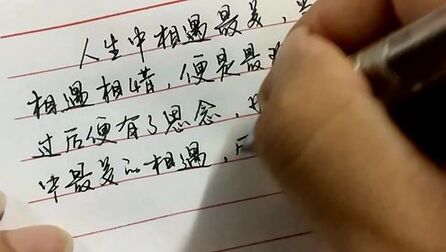 人生中相遇最美，
相遇相惜，便是最
过后便有了思念，
中最美的相遇，